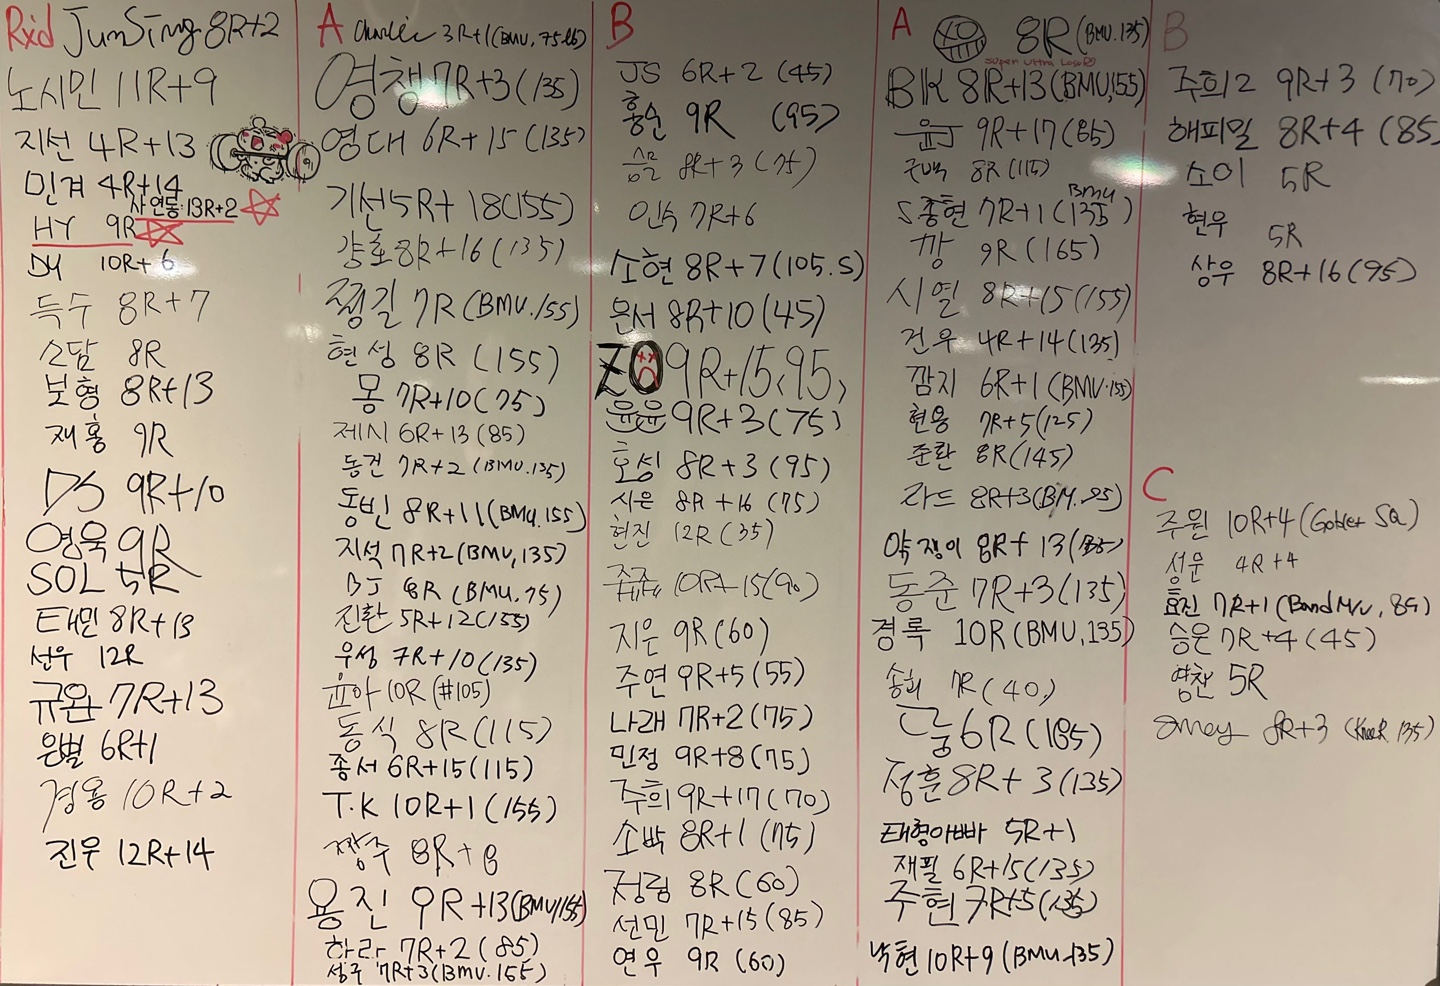 Rxd JunSing 8R+2
노시민 11R+9
지선 4R+13
민겨 4R+14
사연동 13R+2
HY 9R
DY 10R+6
득수 8R+7
소담 8R
보형 8R+13
재홍 9R
DS 9R+10
영욱 9R
SOL 5R
태민 8R+13
선우 12R
규완 7R+13
은별 6R+1
경용 10R+2
진우 12R+14
A Charlie 3R+1(BMU, 75lb)
영챙 7R+3(135)
영대 6R+15(135)
기선 5R+18(155)
걍호 8R+16(135)
쩡길 7R(BMU.155)
현성 8R (155)
몽 7R+10(75)
제시 6R+13(85)
동건 7R+2(BMU.135)
동빈 8R+11(BMU.155)
지석 7R+2(BMU,135)
BJ 8R(BMU.75)
진환 5R+12(155)
우성 7R+10(135)
윤아 10R(#105)
동식 8R(115)
종서 6R+15(115)
T.K 10R+1(155)
짱주 8R+8
용진 9R+13(BMU,155)
하라 7R+2(85)
성주 7R+3(BMU.155)
B
JS 6R+2 (45)
홍순 9R (95)
8R+3(75)
인숙 7R+6
소현 8R+7(105.5)
은서 8R+10(45)
ZO 9R+15,95,
윤윤 9R+3(75)
호성 8R+3(95)
시은 8R+16(75)
현진 12R(35)
쥬쥬 10R+15(90)
지은 9R(60)
주연 9R+5(55)
나래 7R+2(75)
민정 9R+8(75)
주희 9R+17(70)
소박 8R+1(75)
정림 8R(60)
선민 7R+15(85)
연우 9R(60)
A XO 8R(BMU.135)
super ultra
BK 8R+13(BMU,155)
윤J 9R+17(85)
8R(115)
S종현 7R+1(135) BMU
깡 9R(165)
시열 8R+15(155)
건우 4R+14(135)
깜지 6R+1(BMU.155)
현웅 7R+5(125)
준환 8R(145)
라드 8R+3(BM.95)
약쟁이 8R+13(135)
동준 7R+3(135)
경록 10R(BMU,135)
송희 7R(40)
룽 6R(185)
정훈 8R+3(135)
태형아빠 5R+1
재필 6R+15(135)
주현 7R+5(135)
낙현 10R+9(BMU.135)
B
주희2 9R+3(70)
해피밀 8R+4(85)
소이 5R
현우 5R
상우 8R+16(95)
C
주원 10R+4(Goblet SQ)
성운 4R+4
효진 7R+1(Band M/U, 85)
승운 7R+4(45)
영찬 5R
8R+3 (KneeR 135)